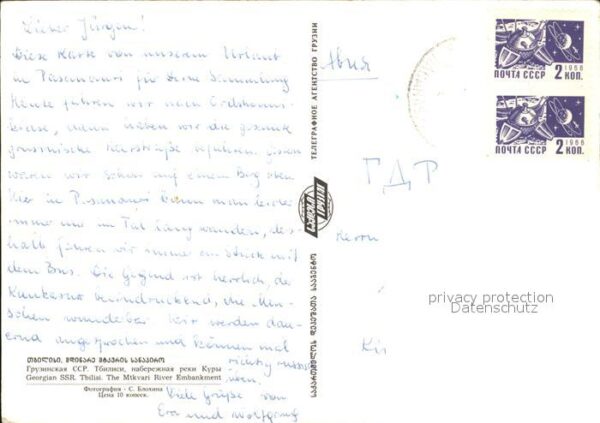 Lieber Jürgen!
Diese Karte von unserem Urlaub
in Pasanauri für Deine Sammlung
Heute fuhren wir nach Ordshoni-
kidse, damit haben wir die gesamte
grusinische Heerstraße befahren. Gestern
waren wir schon auf einem Berg oben
Hier in Pasanauri kann man leider
immer nur im Tal lang wandern, des-
halb fahren wir immer ein Stück mit
dem Bus. Die Gegend ist herrlich, der
Kaukasus beeindruckend, die Men-
schen wunderbar. Wir werden dau-
ernd angesprochen und können mal
richtig russisch
üben.
Viele Grüße von
Eva und Wolfgang
თბილისი, მდინარე მტკვრის სანაპირო
Грузинская ССР. Тбилиси, набережная реки Куры
Georgian SSR. Tbilisi. The Mtkvari River Embankment
Фотография - С. Блохина
Цена 10 копеек.
ТЕЛЕГРАФНОЕ АГЕНТСТВО ГРУЗИИ
საქართველოს დეპეშათა სააგენტო
Авиа
ПОЧТА СССР 1966 2 КОП.
ПОЧТА СССР 1966 2 КОП.
ГДР
Herrn
privacy protection
Datenschutz